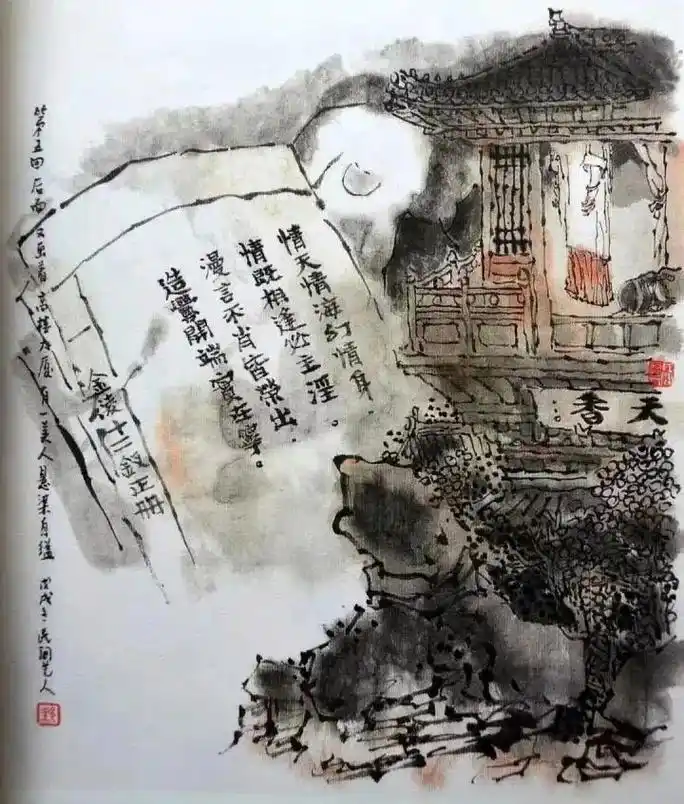 天香
情天情海幻情身.
情既相逢必主淫。
漫言不肖皆榮出.
造釁開端實在寧。
金陵十二釵正册
第五回后面又画着高楼大厦有一美人悬梁自缢 戊戌冬民间艺人